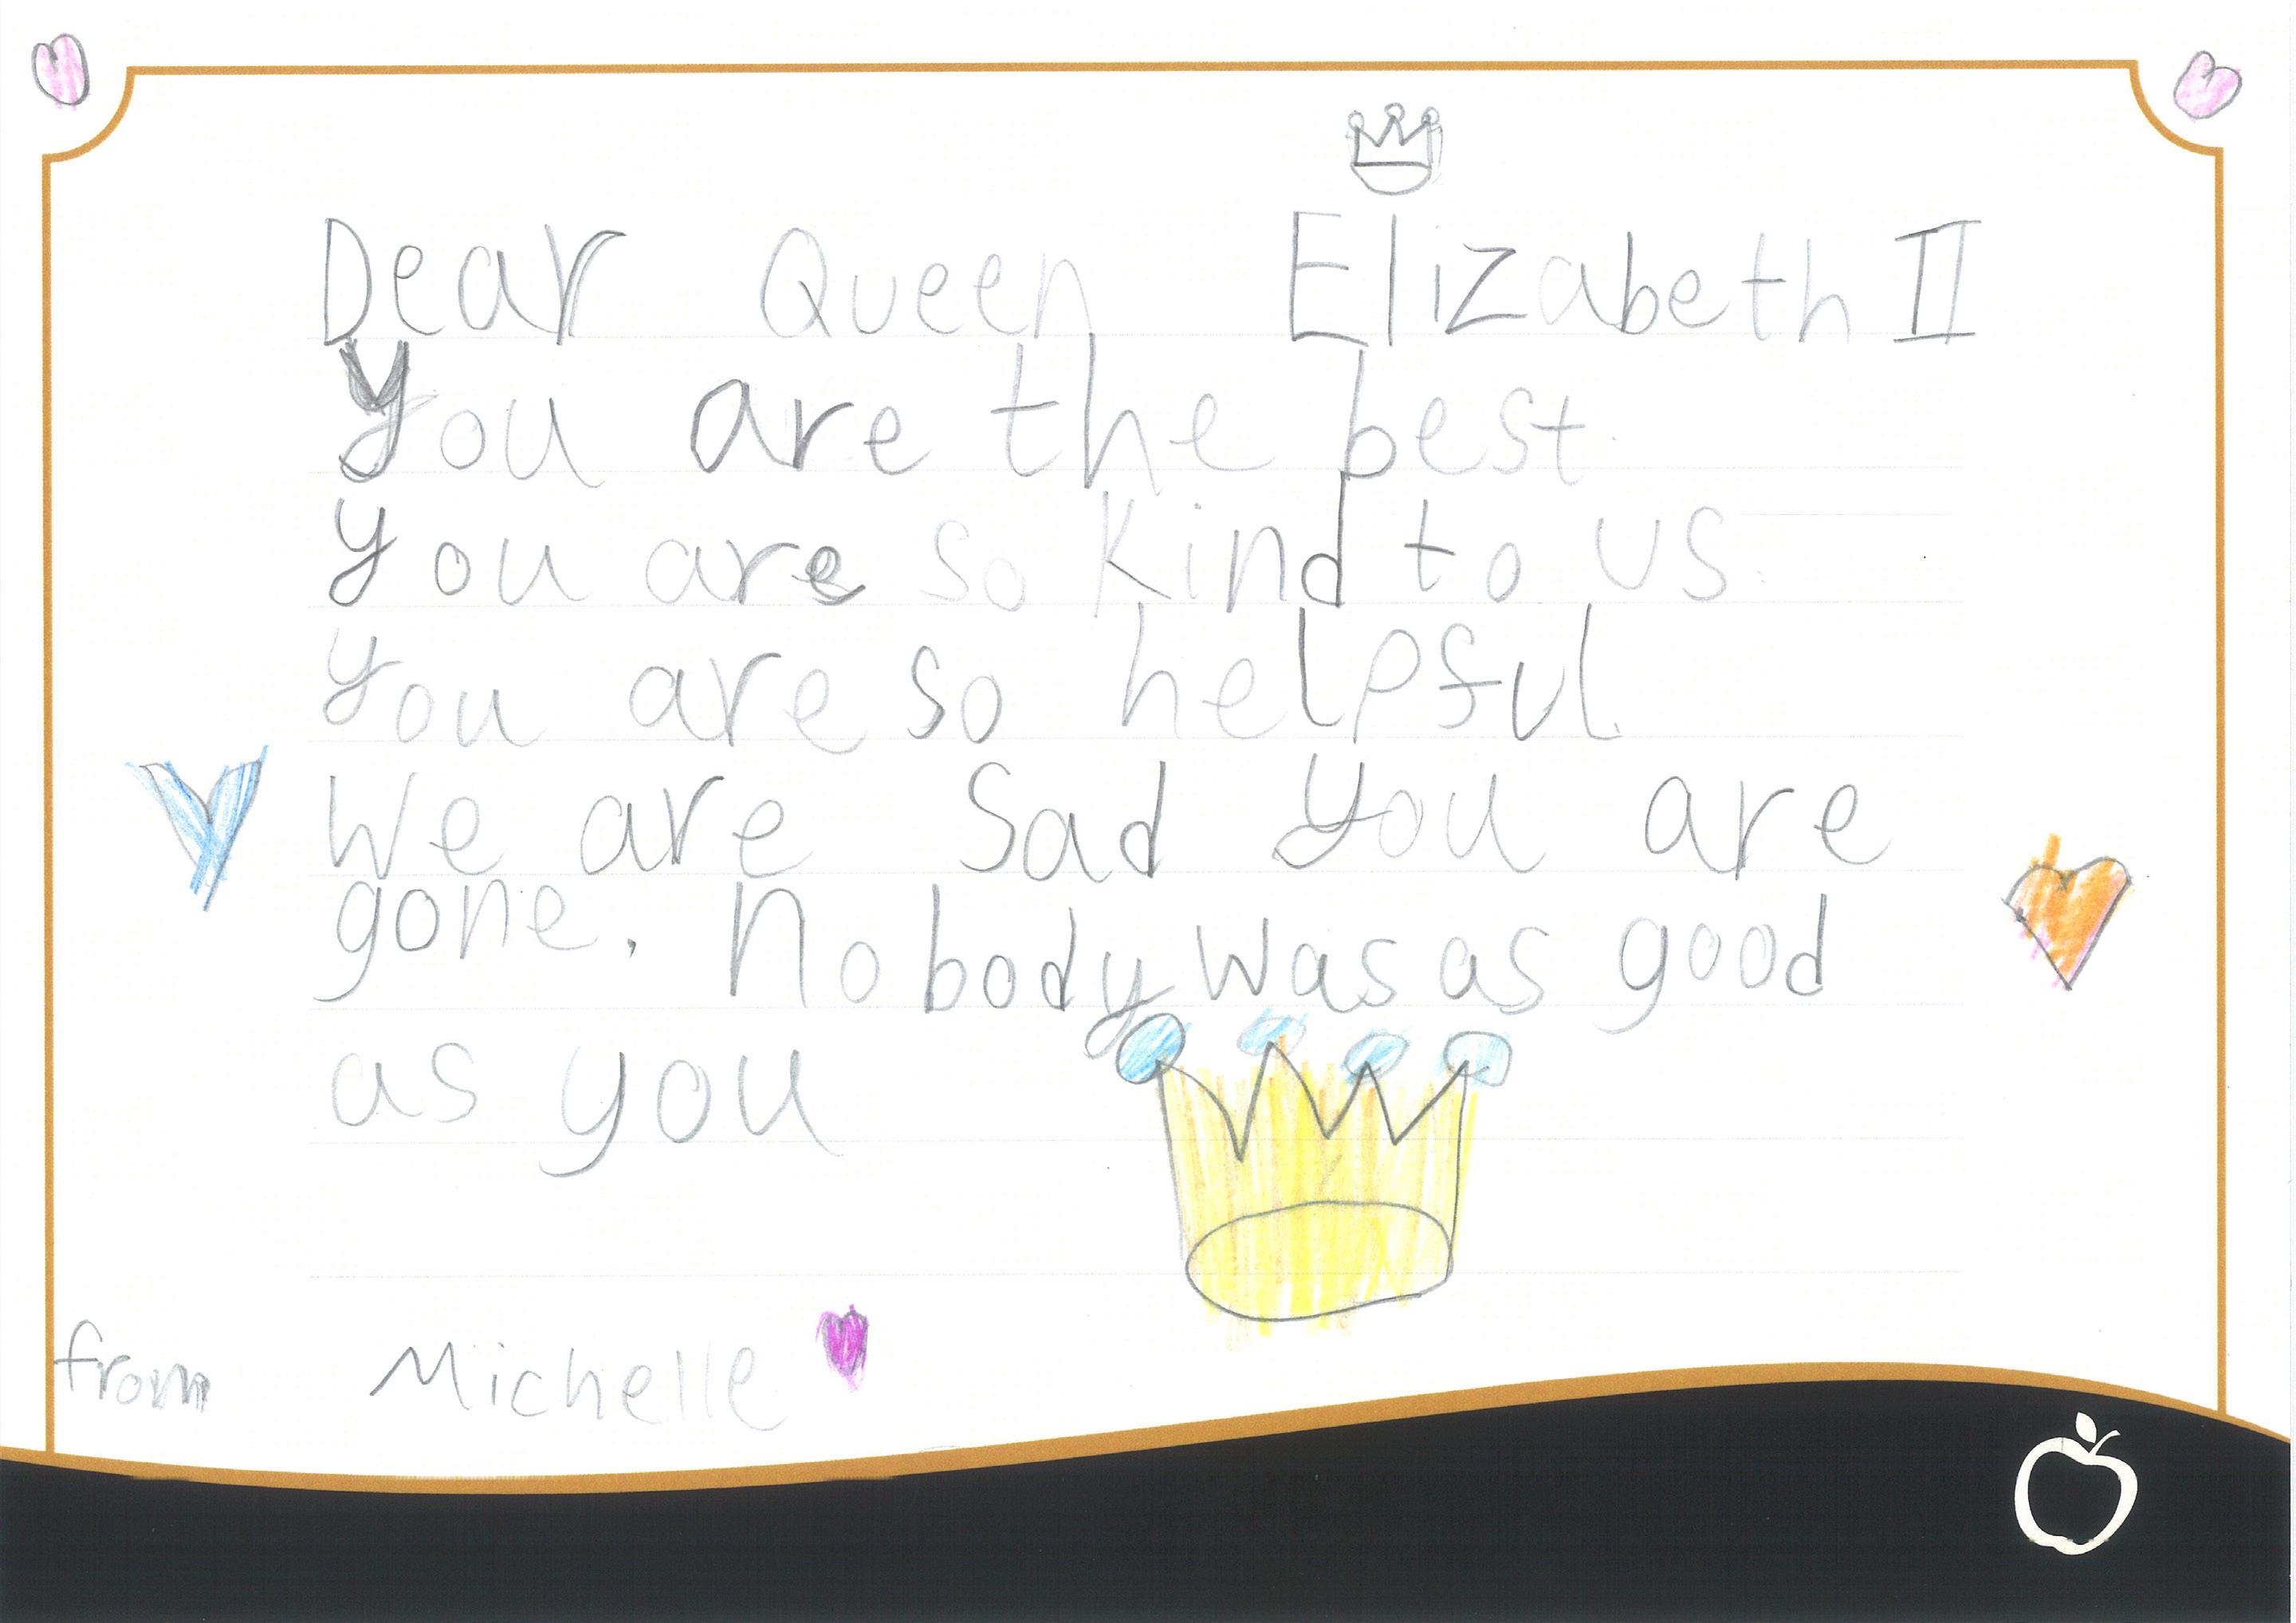 Dear Queen Elizabeth II
You are the best.
You are so kind to us.
You are so helpful.
We are sad you are
gone. Nobody was as good
as you
from Michelle